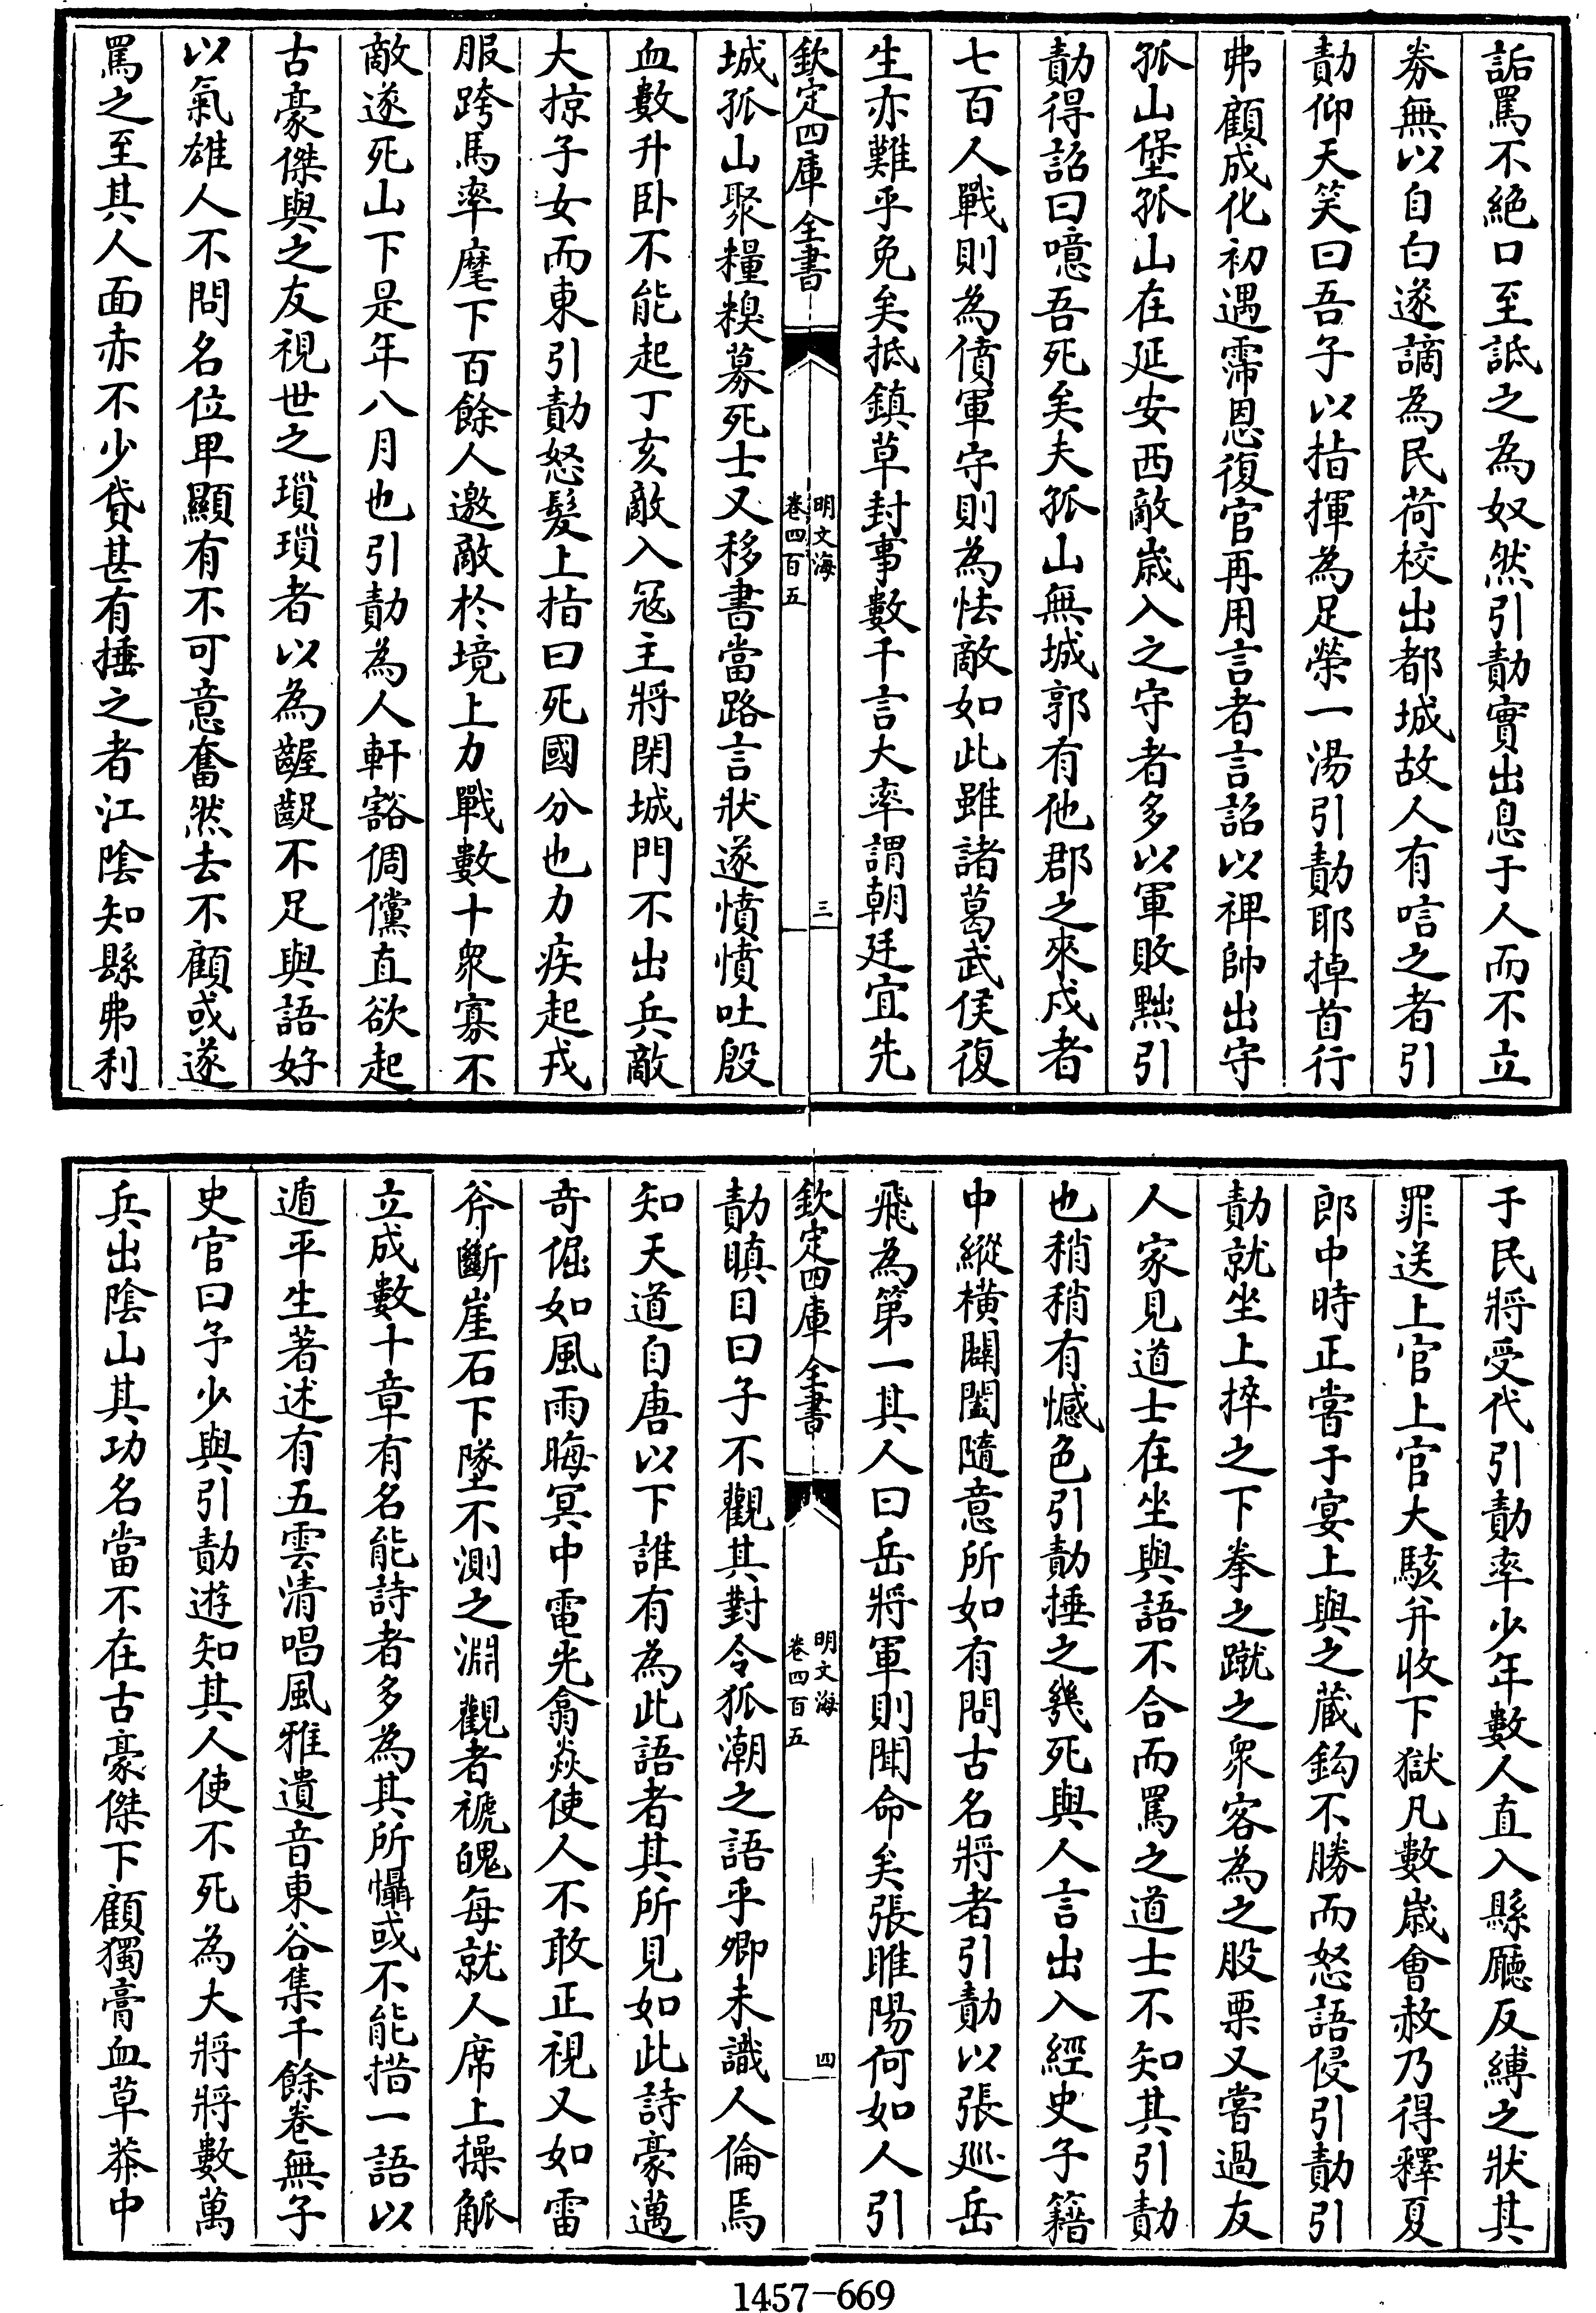 詬罵不絶口至詆之為奴然引勣實出息于人而不立
券無以自白遂謫為民荷校出都城故人有唁之者引
勣仰天笑曰吾子以指揮為足榮一湯引勣耶掉首行
弗顧成化初遇霈恩復官再用言者言詔以禆帥出守
孤山堡孤山在延安西敵嵗入之守者多以軍敗黜引
勣得詔曰噫吾死矣夫孤山無城郭有他郡之來戍者
七百人戰則為僨軍守則為怯敵如此雖諸葛武侯復
生亦難乎免矣抵鎮草封事數千言大率謂朝廷宜先
欽定四庫全書
明文海
卷四百五
三
城孤山聚糧糗募死士又移書當路言狀遂憤憤吐殷
血數升卧不能起丁亥敵入冦主將閉城門不出兵敵
大掠子女而東引勣怒髮上指曰死國分也力疾起戎
服跨馬率麾下百餘人邀敵於境上力戰數十衆寡不
敵遂死山下是年八月也引勣為人軒豁倜儻直欲起
古豪傑與之友視世之瑣瑣者以為齷齪不足與語好
以氣雄人不問名位卑顯有不可意奮然去不顧或遂
罵之至其人面赤不少貸甚有捶之者江陰知縣弗利
于民將受代引勣率少年數人直入縣廳反縛之狀其
罪送上官上官大駭并收下獄凡數嵗會赦乃得釋夏
郎中時正嘗于宴上與之蔵鈎不勝而怒語侵引勣引
勣就坐上捽之下拳之蹴之衆客為之股栗又嘗過友
人家見道士在坐與語不合而罵之道士不知其引勣
也稍稍有憾色引勣捶之幾死與人言出入經史子籍
中縱横闢闔隨意所如有問古名將者引勣以張廵岳
飛為第一其人曰岳將軍則聞命矣張睢陽何如人引
欽定四庫全書
明文海
卷四百五
四
勣瞋目曰子不觀其對令狐潮之語乎卿未識人倫焉
知天道自唐以下誰有為此語者其所見如此詩豪邁
竒倔如風雨晦冥中電光翕焱使人不敢正視又如雷
斧斷崖石下墜不測之淵觀者褫魄每就人席上操觚
立成數十章有名能詩者多為其所懾或不能措一語以
遁平生著述有五雲清唱風雅遺音東谷集千餘卷無子
史官曰予少與引勣遊知其人使不死為大將將數萬
兵出陰山其功名當不在古豪傑下顧獨膏血草莽中
1457-669